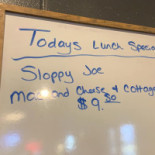 Todays Lunch Special
Sloppy Joe
Mac and Cheese & Cottage
$9.50